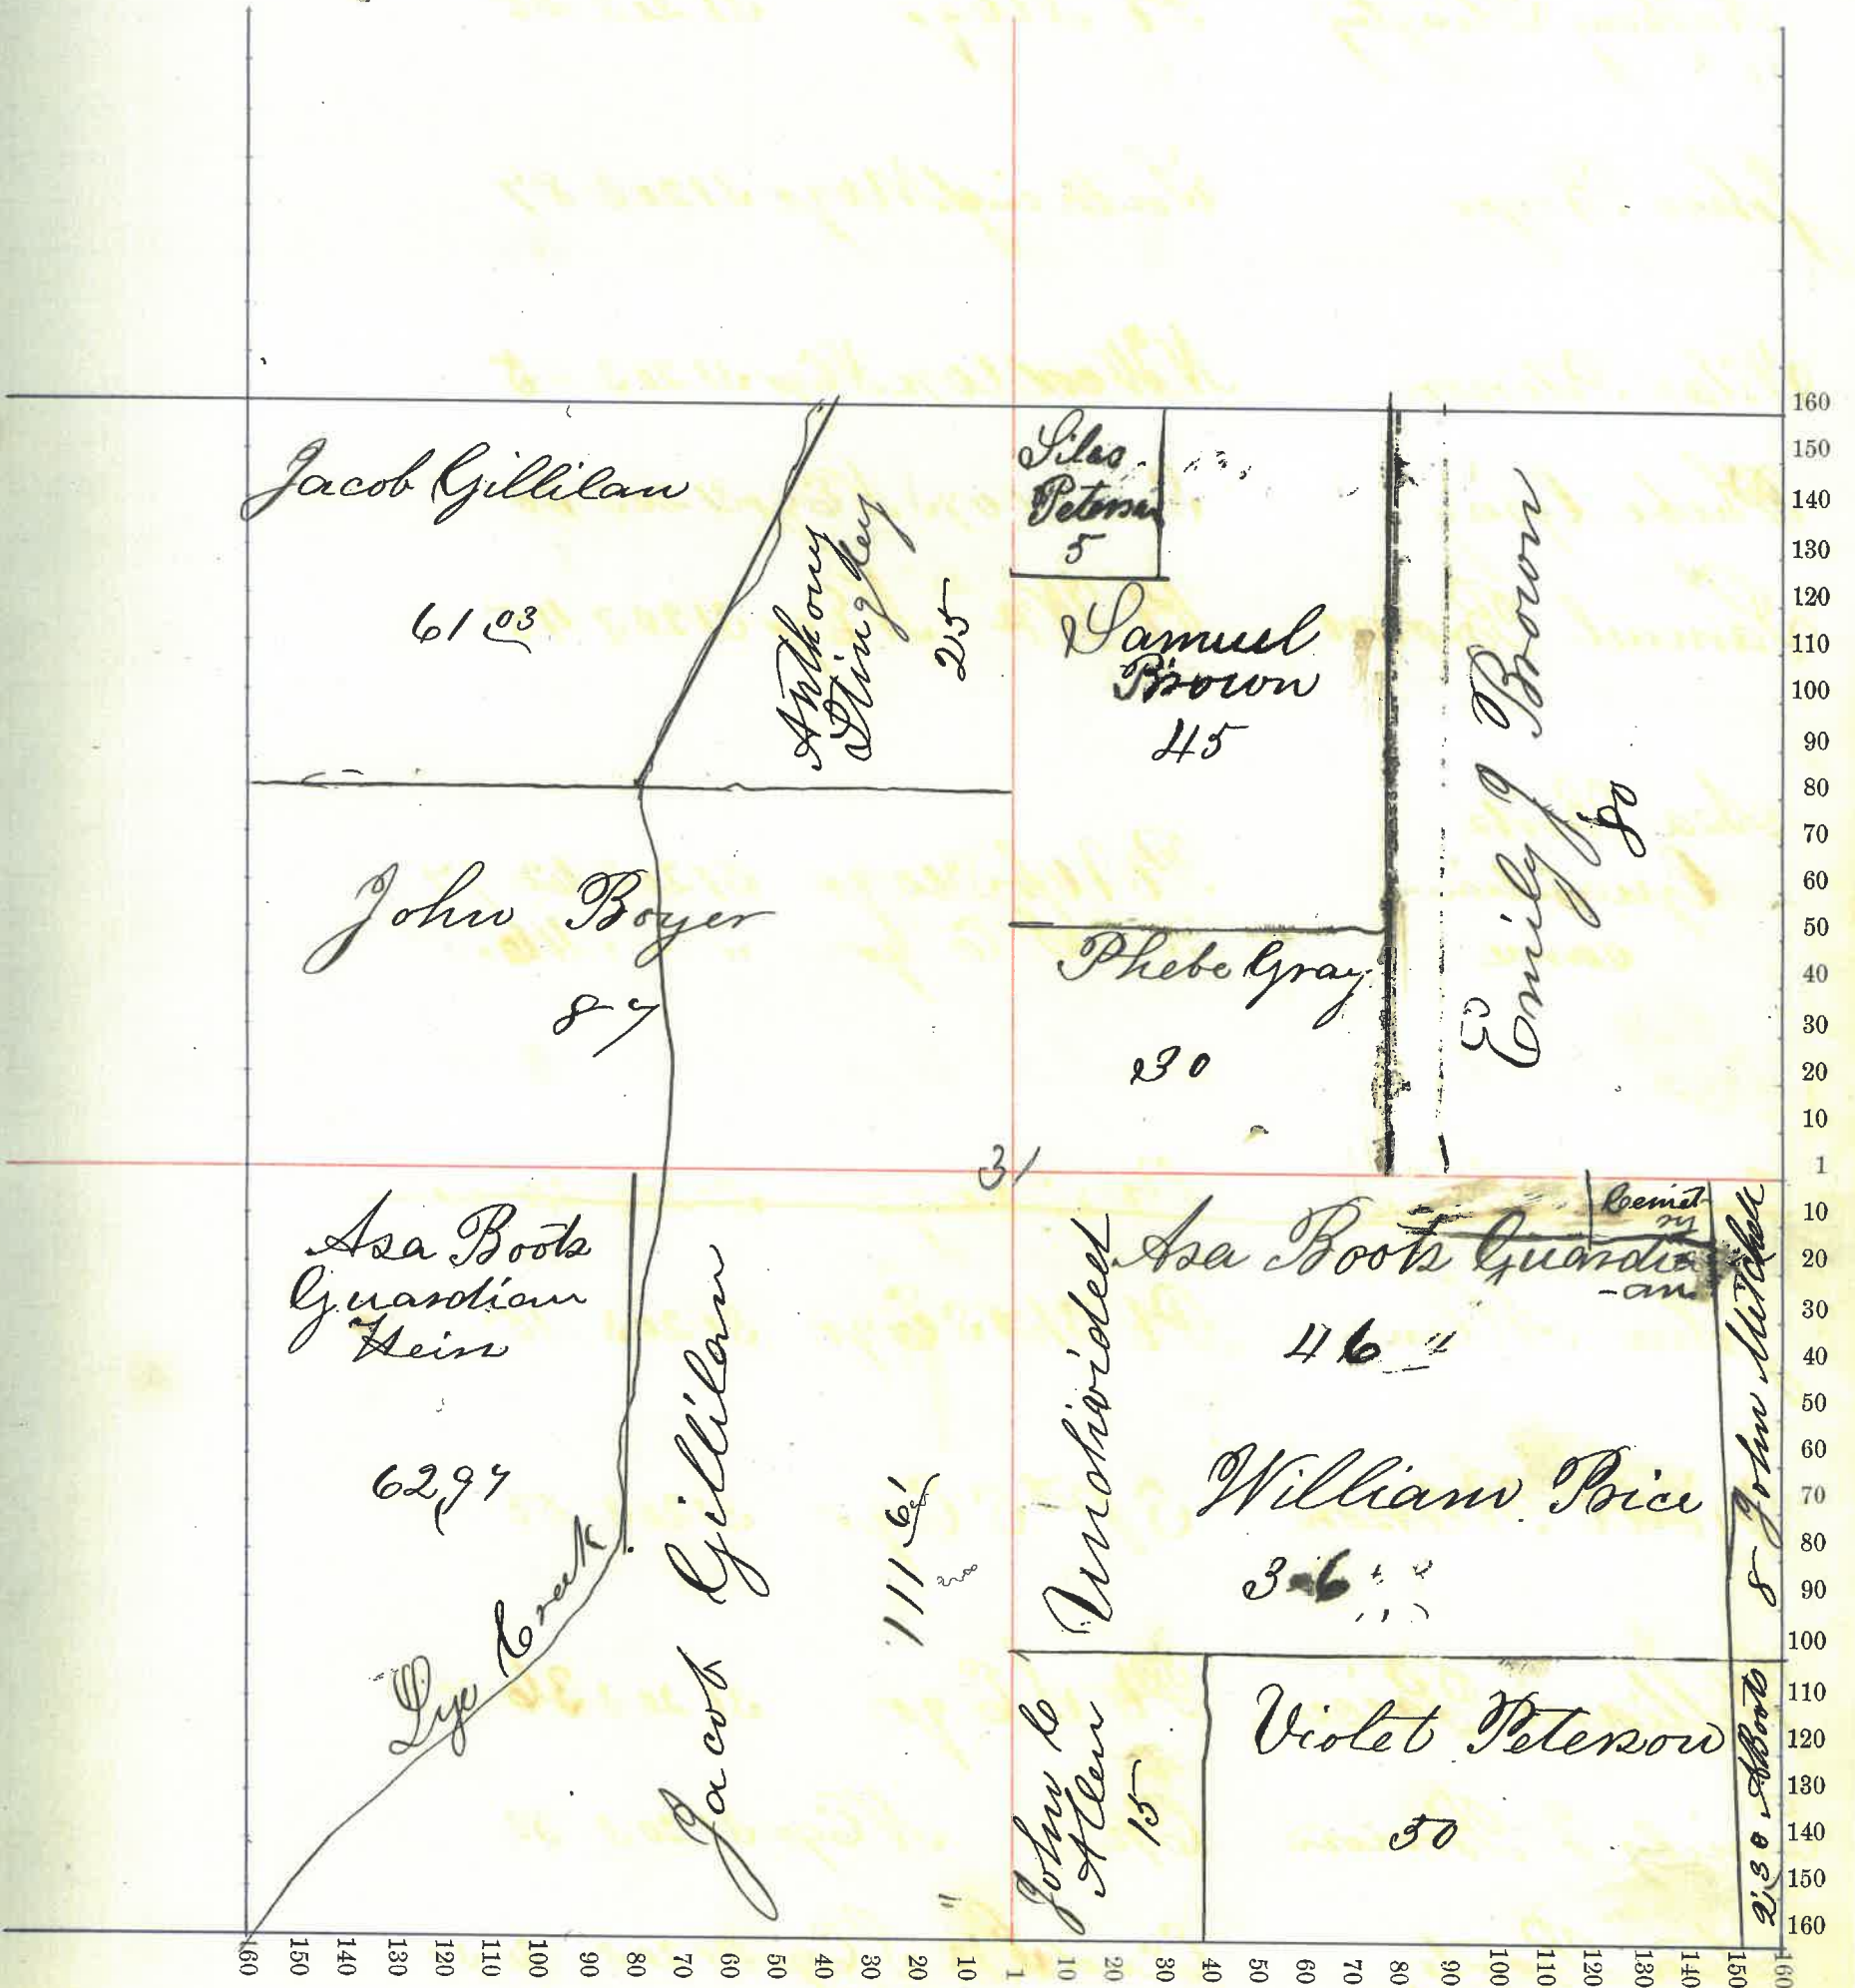 Jacob Gillilan
61 03
Anthony
Stingley
25
Silas
Peterson
5
Samuel
Brown
45
Emily J Brown
80
John Boyer
87
Phebe Gray
30
31
Asa Boots
Guardian
Heirs
62,97
Lye Creek
Jacob Gillilan
111 61
Undivided
Asa Boots Guardi
-an
46
Cemet
ry
William Price
36
8 John Mitchell
John C
Allen
15
Violet Peterson
50
2.30 A Boots
160
150
140
130
120
110
100
90
80
70
60
50
40
30
20
10
1
10
20
30
40
50
60
70
80
90
100
110
120
130
140
150
160
160
150
140
130
120
110
100
90
80
70
60
50
40
30
20
10
1
10
20
30
40
50
60
70
80
90
100
110
120
130
140
150
160